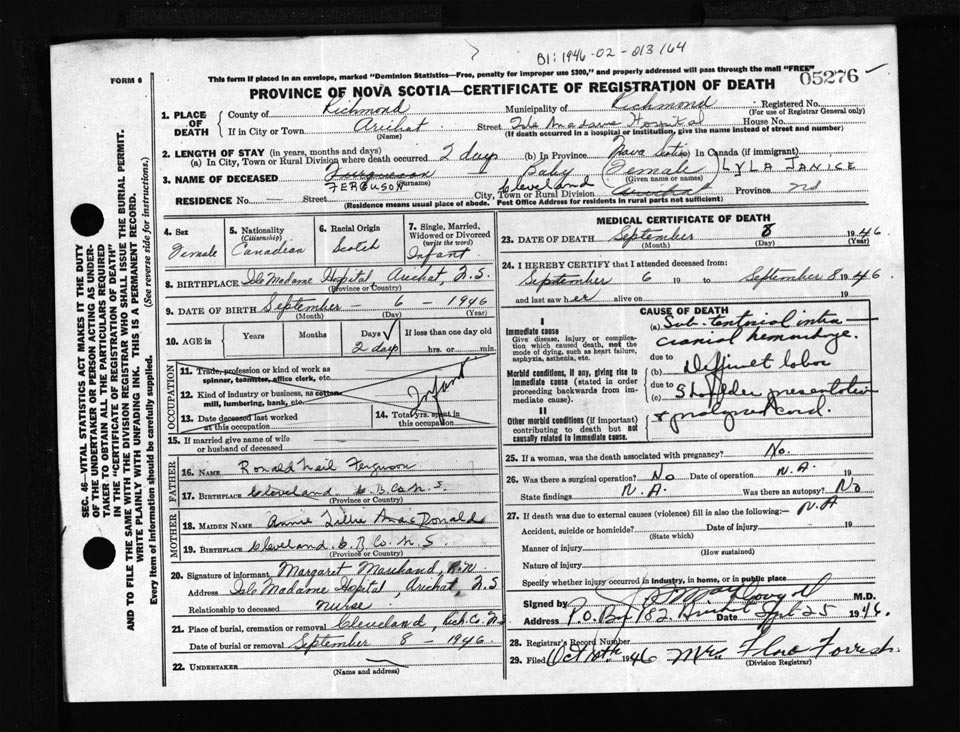 B1: 1946-02-013164
FORM 6
This form if placed in an envelope, marked "Dominion Statistics—Free, penalty for improper use $300," and properly addressed will pass through the mail "FREE"
05276
PROVINCE OF NOVA SCOTIA—CERTIFICATE OF REGISTRATION OF DEATH
1. PLACE OF DEATH
County of Richmond Municipality of Richmond Registered No.
(For use of Registrar General only)
If in City or Town Arichat Street Isle Madame Hospital House No.
(Name) (If death occurred in a hospital or institution, give the name instead of street and number)
2. LENGTH OF STAY (in years, months and days)
(a) In City, Town or Rural Division where death occurred 2 days (b) In Province Nova Scotia In Canada (if immigrant)
3. NAME OF DECEASED Ferguson Baby Female LYLA JANICE
FERGUSON (Surname) (Given name or names)
RESIDENCE No. — Street City, Town or Rural Division Cleveland Arichat Province NS
(Residence means usual place of abode. Post Office Address for residents in rural parts not sufficient)
4. Sex Female
5. Nationality (Citizenship) Canadian
6. Racial Origin Scotch
7. Single, Married, Widowed or Divorced (write the word) Infant
8. BIRTHPLACE Isle Madame Hospital, Arichat, N.S.
(Province or Country)
9. DATE OF BIRTH September - 6 - 1946
(Month) (Day) (Year)
10. AGE in Years Months Days 2 days If less than one day old hrs. or min.
OCCUPATION
11. Trade, profession or kind of work as spinner, teamster, office clerk, etc.
12. Kind of industry or business, as cotton mill, lumbering, bank, etc.
Infant
13. Date deceased last worked at this occupation
14. Total yrs. spent in this occupation
15. If married give name of wife or husband of deceased
FATHER
16. NAME Ronald Neil Ferguson
17. BIRTHPLACE Cleveland C.B. Co. N.S.
(Province or Country)
MOTHER
18. MAIDEN NAME Annie Lillie MacDonald
19. BIRTHPLACE Cleveland C.B. Co. N.S
(Province or Country)
20. Signature of informant Margaret Marchand, R.N.
Address Isle Madame Hospital, Arichat, N.S
Relationship to deceased Nurse
21. Place of burial, cremation or removal Cleveland, Rich. Co. N.S
Date of burial or removal September 8 - 1946.
22. UNDERTAKER
(Name and address)
MEDICAL CERTIFICATE OF DEATH
23. DATE OF DEATH September 8 1946.
(Month) (Day) (Year)
24. I HEREBY CERTIFY that I attended deceased from:
September 6 to September 8 1946
and last saw her alive on 19
CAUSE OF DEATH
I
Immediate cause
Give disease, injury or complication which caused death, not the mode of dying, such as heart failure, asphyxia, asthenia, etc.
(a) Sub-tentorial intra-cranial hemorrhage.
due to
Morbid conditions, if any, giving rise to immediate cause (stated in order proceeding backwards from immediate cause).
(b) Difficult labor
due to
(c) Shoulder presentation
& prolapsed cord.
II
Other morbid conditions (if important) contributing to death but not causally related to immediate cause.
25. If a woman, was the death associated with pregnancy? No.
26. Was there a surgical operation? No Date of operation N.A. 19
State findings N.A. Was there an autopsy? No
27. If death was due to external causes (violence) fill in also the following:— N.A
Accident, suicide or homicide? Date of injury 19
(State which)
Manner of injury
(How sustained)
Nature of injury
Specify whether injury occurred in industry, in home, or in public place
Signed by M.D.
Address P.O. Box 182 Arichat Date Sept 25 1946.
28. Registrar's Record Number
29. Filed Oct 10th 1946 Mrs. Flora Forrest
(Division Registrar)
SEC. 46—VITAL STATISTICS ACT MAKES IT THE DUTY
OF THE UNDERTAKER OR PERSON ACTING AS UNDER-
TAKER TO OBTAIN ALL THE PARTICULARS REQUIRED
IN THE "CERTIFICATE OF REGISTRATION OF DEATH"
AND TO FILE THE SAME WITH THE DIVISION REGISTRAR WHO SHALL ISSUE THE BURIAL PERMIT.
WRITE PLAINLY WITH UNFADING INK. THIS IS A PERMANENT RECORD.
Every item of Information should be carefully supplied. (See reverse side for instructions.)